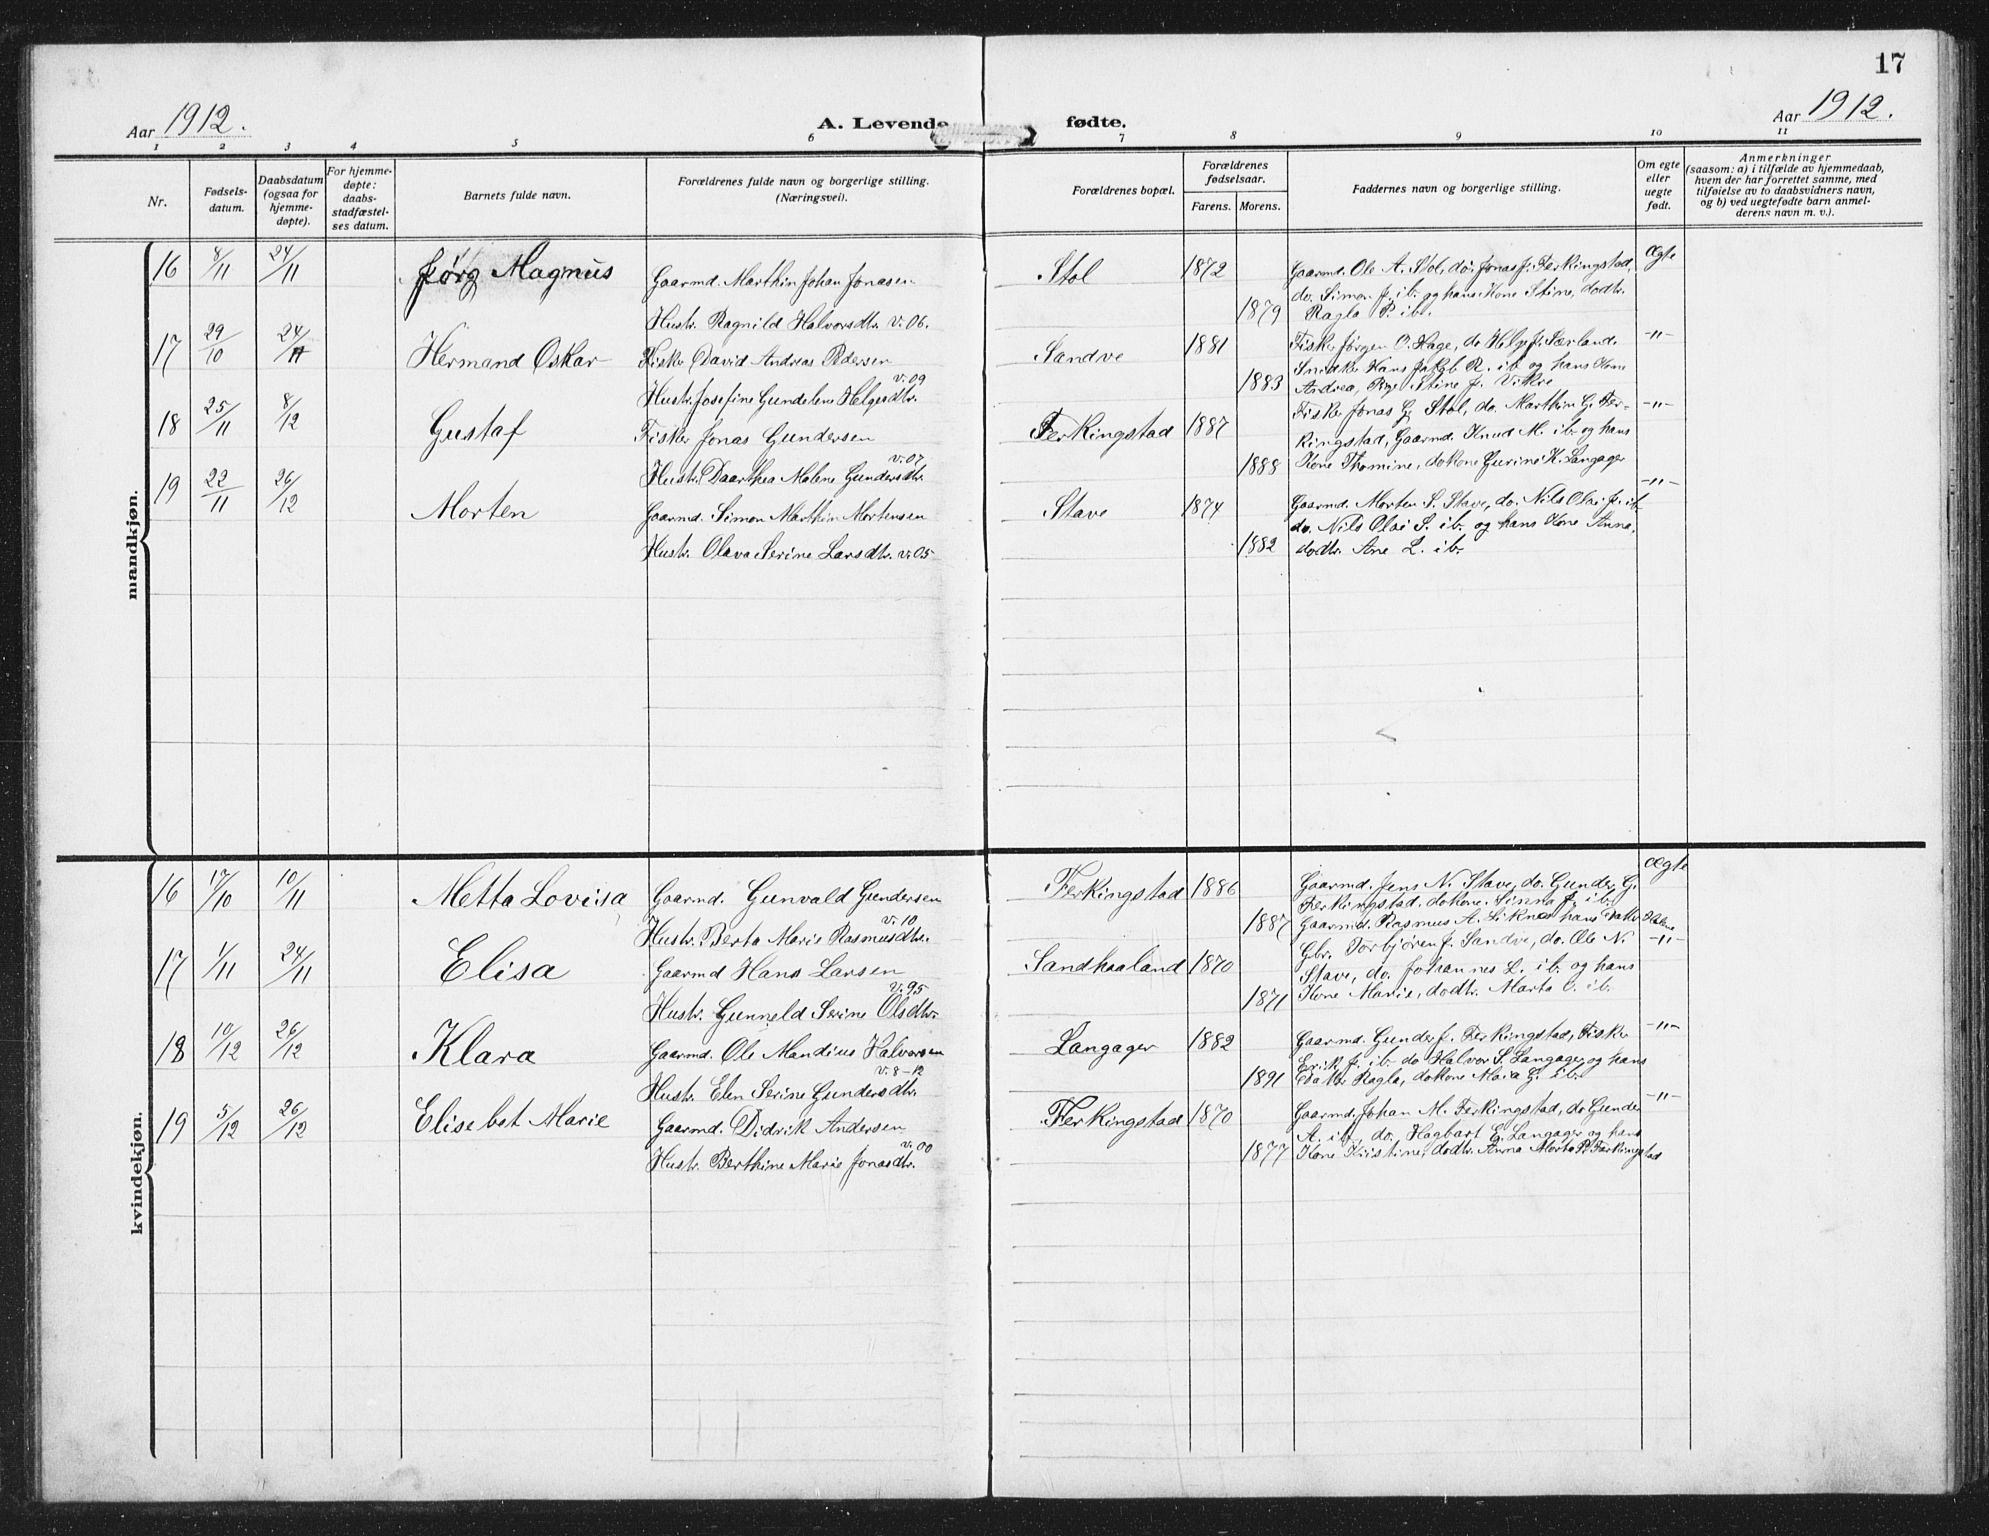 17
Aar 1912. A. Levende fødte. Aar 1912.
1 2 3 4 5 6 7 8 9 10 11
Nr.
Fødsels-
datum.
Daabsdatum
(ogsaa for
hjemme-
døpte).
For hjemme-
døpte:
daabs-
stadfæstel-
ses datum.
Barnets fulde navn.
Forældrenes fulde navn og borgerlige stilling.
(Næringsvei).
Forældrenes bopæl.
Forældrenes
fødselsaar.
Farens. Morens.
Faddernes navn og borgerlige stilling.
Om egte
eller
uegte
født.
Anmerkninger
(saasom: a) i tilfælde av hjemmedaab,
hvem der har forrettet samme, med
tilføielse av to daabsvidners navn,
og b) ved uegtefødte barn anmel-
derens navn m. v.).
mandkjøn.
16 8/11 24/11 Jørg Magnus
Gaarmd. Marthin Johan Jonasen
Hustr. Ragnild Halvorsdtr. v. 06.
Stol 1872
1879
Gaarmd. Ole A. Stol, do. Jonas J. Ferkingstad,
do. Simon J. ib. og hans Kone Stine, dodtr.
Ragla P. ib.
Ægte
17 29/10 24/11 Hermand Oskar
Fisker David Andreas Pedersen
v. 09
Hustr. Josefine Gundelene Helgesdtr.
Sandve 1881
1883
Fisker Jørgen O. Hage, do Helge J. Særland.
Snedker Hans Jakob R. ib og hans Kone
Andrea, Pige Stine J. Vikre
-"-
18 25/11 8/12 Gustaf
Fisker Jonas Gundersen
v. 07
Hustr. Daarthea Malene Gundersdtr.
Ferkingstad 1887
1888
Fisker Jonas G. Stol, do. Marthin G. Fer-
kingstad, Gaarmd. Knud M. ib. og hans
Kone Thomine, dokone Gurine K. Langager
-"-
19 22/11 26/12 Morten
Gaarmd. Simon Marthin Mortensen
Hustr. Olava Serine Larsdtr. v. 05
Stave 1874
1882
Gaarmd. Morten S. Stave, do. Nils Olai J. ib
do. Nils Olai S. ib. og hans Kone Anna,
dodtr. Ane L. ib.
-"-
kvindekjøn.
16 17/10 10/11 Metta Lovisa
Gaarmd. Gunvald Gundersen
v. 10
Hustr. Berta Marie Rasmusdtr.
Ferkingstad 1886
1887
Gaarmd. Jens N. Stave, do. Gunder G.
Ferkingstad. dokone. Sinna J. ib.
Gaarmd. Rasmus A. Liknes hans Datter
Ægte
17 1/11 24/11 Elisa
Gaarmd Hans Larsen
v. 95
Hustr. Gunneld Serine Olsdtr.
Sandhaaland 1870
1871
Gbr. Torbjøren J. Sandve, do. Ole N.
Stave, do. Johannes L. ib. og hans
Kone Marie, dodtr. Marta O. ib.
-"-
18 10/12 26/12 Klara
Gaarmd. Ole Mandius Halvorsen
v. 8-12
Hustr. Elen Serine Gundersdtr.
Langager 1882
1891
Gaarmd. Gunder J. Ferkingstad, Fisker
Erik J. ib. do Halvor S. Langager og hans
Datter Ragla, dokone Maria G. ib.
-"-
19 5/12 26/12 Elisebet Marie
Gaarmd. Didrik Andersen
v. 00
Hustr. Berthine Marie Jonasdtr.
Ferkingstad 1870
1877
Gaarmd. Johan M. Ferkingstad, do Gunder
A. ib., do. Hagbart E. Langager og hans
Kone Kristine, dodtr. Anna Marta P. Ferkingstad
-"-